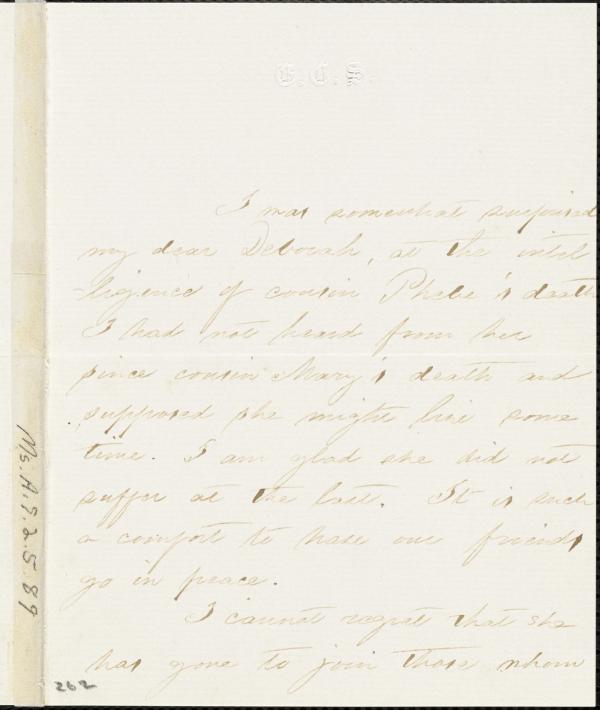 E.C.S.
I was somewhat surprised
my dear Deborah, at the intel
-ligence of cousin Phebe's death
I had not heard from her
since cousin Mary's death and
supposed she might live some
time. I am glad she did not
suffer at the last. It is such
a comfort to have our friends
go in peace.
I cannot regret that she
has gone to join those whom
Ms.A.9.2.5.89
262